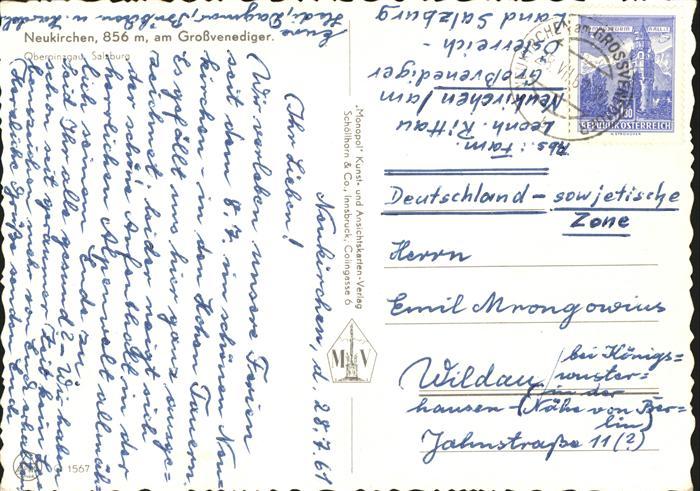 Neukirchen, 856 m, am Großvenediger.
Oberpinzgau, Salzburg
Neukirchen, d. 28.7.61
Ihr Lieben!
Wir verleben unsere Ferien
seit dem 8.7. im schönen Neu-
kirchen - in den Hohen Tauern.
Es gefällt uns hier ganz ausge-
zeichnet; leider neigt sich
der schöne Aufenthalt in der
herrlichen Alpenwelt allmäh-
lich seinem Ende zu.
Seid Ihr alle gesund? - Wir haben
seit geraumer Zeit
von
Herzliche Grüße senden
Eure
Hedi, Dagmar,
"Monopol" Kunst- und Ansichtskarten-Verlag
Schöllhorn & Co., Innsbruck, Colingasse 6
M V
1567
Abs.: Fam.
Leonh. Rittau
Neukirchen/am
Großvenediger
Österreich -
Land Salzburg
NEUKIRCHEN am GROSSVENEDIGER
REPUBLIK ÖSTERREICH
Deutschland - sowjetische
Zone
Herrn
Emil Mrongowius
Wildau / bei Königs-
wuster-
hausen - (Nähe von Ber-
lin)
Jahnstraße 11 (?)